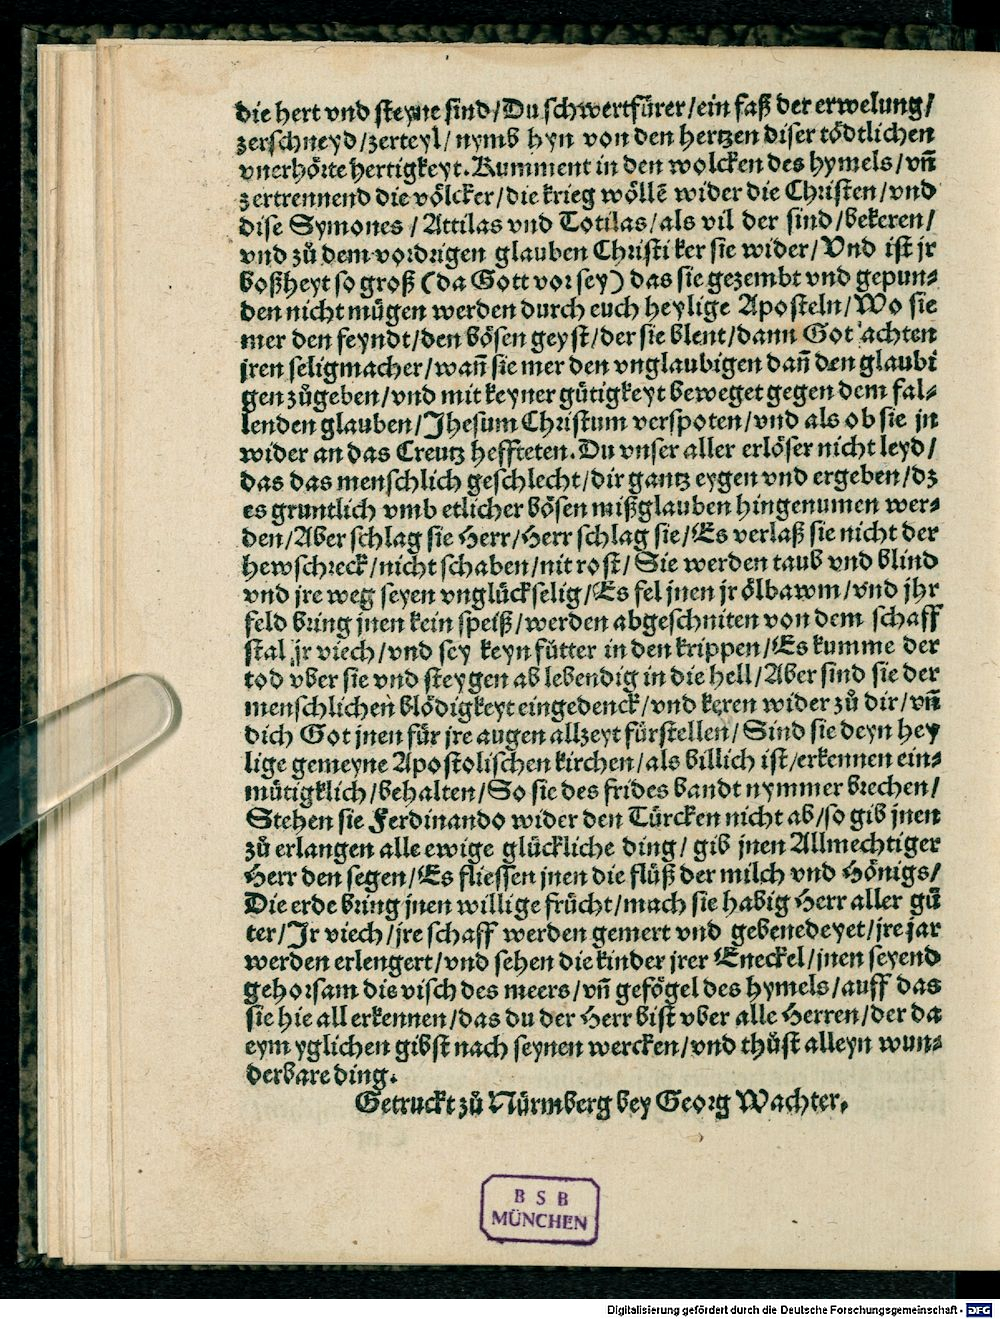 die hert vnd steyne sind/Du schwertfürer/ein faß der erwelung/
zerschneyd/zerteyl/nymb hyn von den hertzen diser tödtlichen
vnerhörte hertigkeyt. Kumment in den wolcken des hymels/vñ
zertrennend die völcker/die krieg wöllẽ wider die Christen/vnd
dise Symones/Attilas vnd Totilas/als vil der sind/bekeren/
vnd zů dem vordrigen glauben Christi ker sie wider/Vnd ist jr
boßheyt so groß (da Gott vor sey) das sie gezembt vnd gepun⸗
den nicht mügen werden durch euch heylige Aposteln/Wo sie
mer den feyndt/den bösen geyst/der sie blent/dann Got achten
jren seligmacher/wañ sie mer den vnglaubigen dañ den glaubi
gen zůgeben/vnd mit keyner gütigkeyt beweget gegen dem fal⸗
lenden glauben/Jhesum Christum verspoten/vnd als ob sie jn
wider an das Creutz heffteten. Du vnser aller erlöser nicht leyd/
das das menschlich geschlecht/dir gantz eygen vnd ergeben/dz
es gruntlich vmb etlicher bösen mißglauben hingenumen wer⸗
den/Aber schlag sie Herr/Herr schlag sie/Es verlaß sie nicht der
hewschreck/nicht schaben/nit rost/Sie werden taub vnd blind
vnd jre weg seyen vnglückselig/Es fel jnen jr ölbawm/vnd jhr
feld bring jnen kein speiß/werden abgeschniten von dem schaff
stal jr viech/vnd sey keyn fütter in den krippen/Es kumme der
tod vber sie vnd steygen ab lebendig in die hell/Aber sind sie der
menschlichen blödigkeyt eingedenck/vnd keren wider zů dir/vñ
dich Got jnen für jre augen allzeyt fürstellen/Sind sie deyn hey
lige gemeyne Apostolischen kirchen/als billich ist/erkennen ein⸗
mütigklich/behalten/So sie des frides bandt nymmer brechen/
Stehen sie Ferdinando wider den Türcken nicht ab/so gib jnen
zů erlangen alle ewige glückliche ding/gib jnen Allmechtiger
Herr den segen/Es fliessen jnen die flüß der milch vnd Hönigs/
Die erde bring jnen willige frücht/mach sie habig Herr aller gü
ter/Jr viech/jre schaff werden gemert vnd gebenedeyet/jre jar
werden erlengert/vnd sehen die kinder jrer Eneckel/jnen seyend
gehorsam die visch des meers/vñ gefögel des hymels/auff das
sie hie all erkennen/das du der Herr bist vber alle Herren/der da
eym yglichen gibst nach seynen wercken/vnd thůst alleyn wun⸗
derbare ding.
Getruckt zů Nürmberg bey Georg Wachter.
B S B
MÜNCHEN
Digitalisierung gefördert durch die Deutsche Forschungsgemeinschaft - DFG